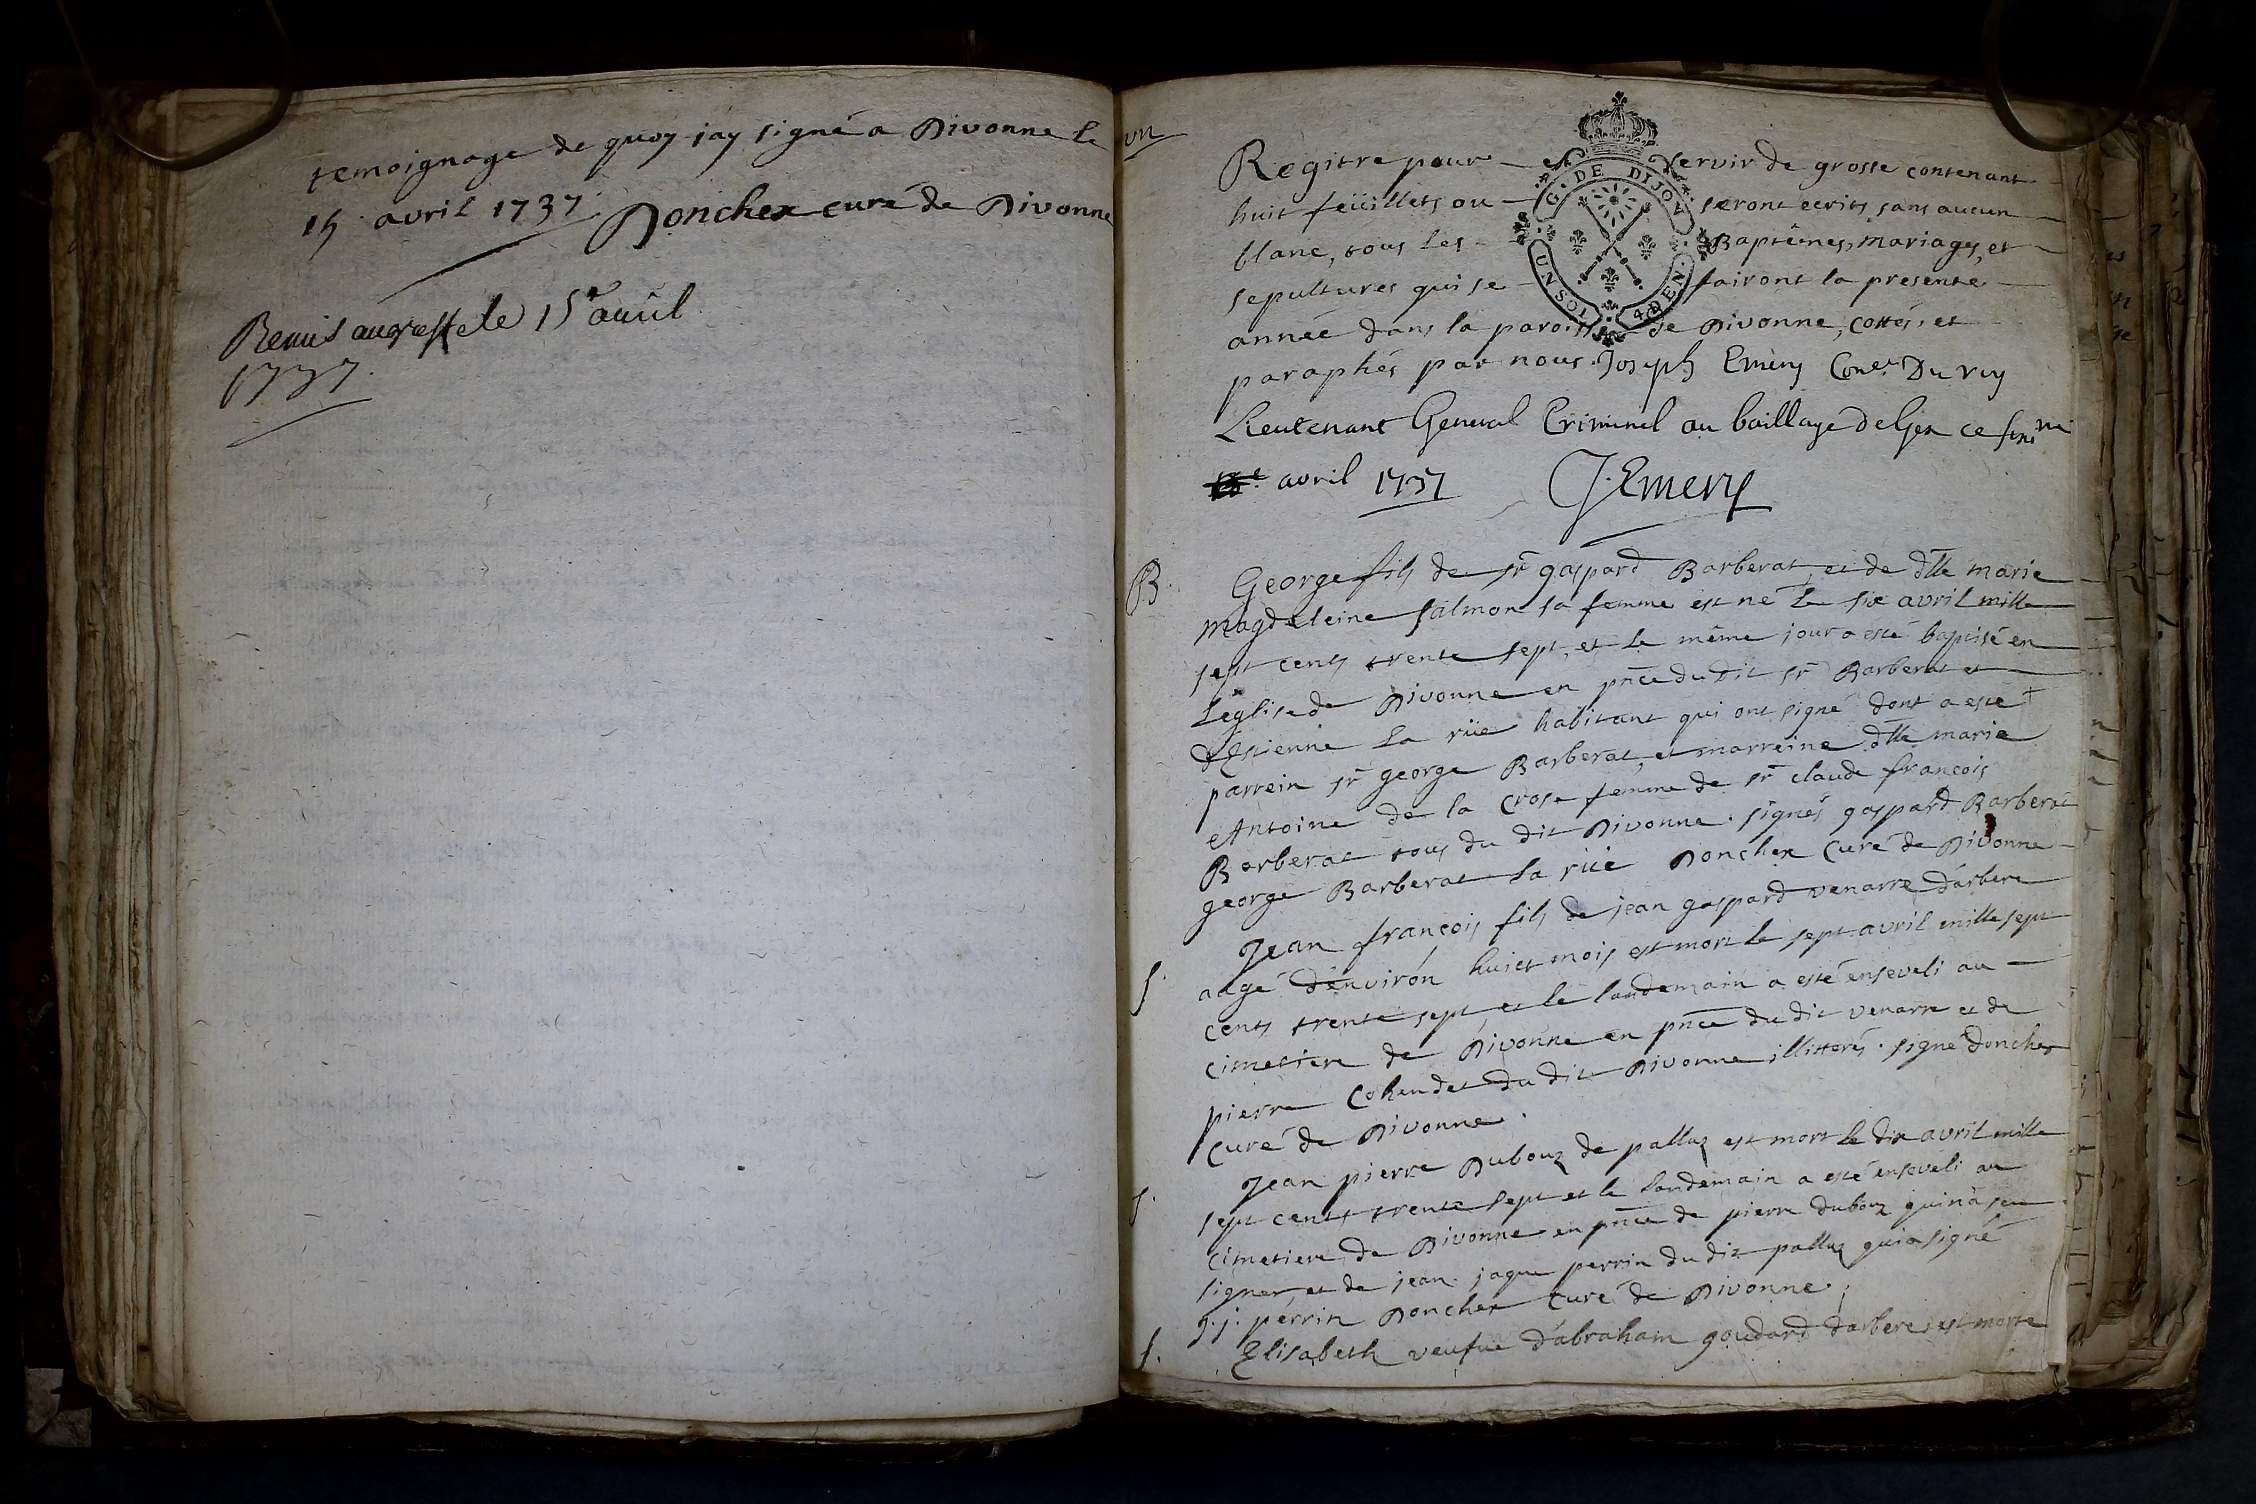 temoignage de quoy jay signé a Divonne le
15 avril 1737. Donchex curé de Divonne
Remis au greffe le 15e auril
1737.
vn
Regitre pour servir de grosse contenant
huit feüillets ou seront ecrits sans aucun
blanc, tous les Baptêmes, mariages, et
sepultures qui se fairont la presente
année dans la paroisse de Divonne, cottés, et
paraphés par nous Joseph Emery Coner Du roy
Lieutenant General Criminel au baillage de Gex ce
avril 1737 J. Emery
G. DE DIJON
UNSOL
4 DEN.
B. George fils de sr gaspard Barberat, et de dlle marie
magdeleine salmon sa femme est né le six avril mille
sept cents trente sept, et le même jour a esté baptisé en
Léglise de Divonne en pnce du dit sr Barberat et
d'Estienne La rüe habitant qui ont signé dont a esté
parrein sr george Barberat, et marreine dlle marie
Antoine de la Crose femme de sr claude françois
Barberat tous du dit Divonne. signés gaspard Barberat
george Barberat La rüe Donchex Curé de Divonne
S. Jean françois fils de jean gaspard venarre d'arbere
aagé d'environ huict mois est mort le sept avril mille sept
cents trente sept, et le landemain a esté enseveli au
cimetiere de Divonne en pnce du dit venarre et de
pierre Cohendet du dit Divonne illitterés. signé Donchex
Curé de Divonne.
S. Jean pierre Dubouz de palluz est mort le dix avril mille
sept cents trente sept et le landemain a esté enseveli au
Cimetiere de Divonne en pnce de pierre dubouz qui n'a sçu
signer, et de jean jaque perrin du dit palluz qui a signé
j. j. perrin Donchex Curé de Divonne.
S. Elisabeth veufue d'abraham goudard d'arbere est morte